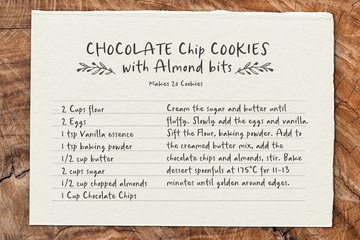 CHOCOLATE Chip COOKIES
with Almond bits
Makes 20 Cookies
2 Cups flour
2 Eggs
1 tsp Vanilla essence
1 tsp baking powder
1/2 cup butter
2 cups sugar
1/2 cup chopped almonds
1 Cup Chocolate Chips
Cream the sugar and butter until
fluffy. Slowly add the eggs and vanilla.
Sift the Flour, baking powder. Add to
the creamed butter mix, add the
chocolate chips and almonds, stir. Bake
dessert spoonfuls at 175°C for 11-13
minutes until golden around edges.